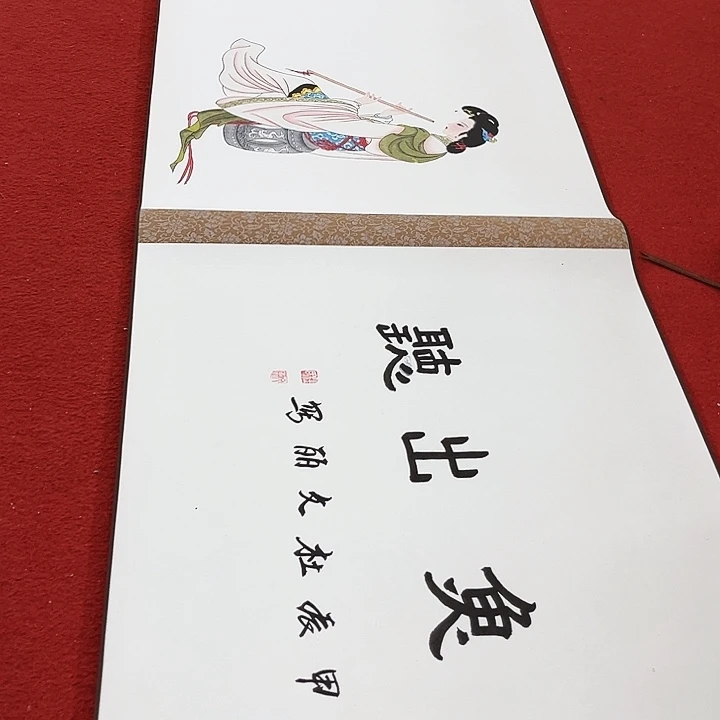 魚出聽
甲辰杜文丽写